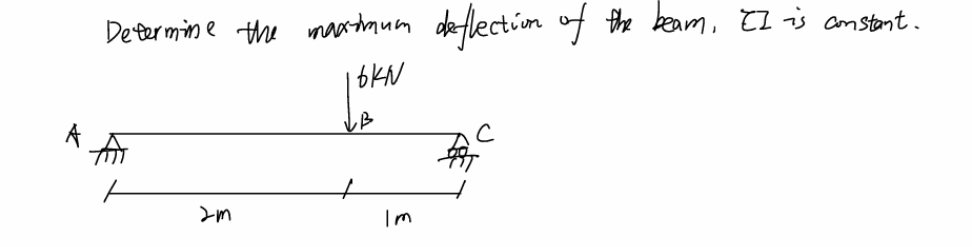 Determine the maximum deflection of the beam, EI is constant.
6KN
B
A
C
2m
1m